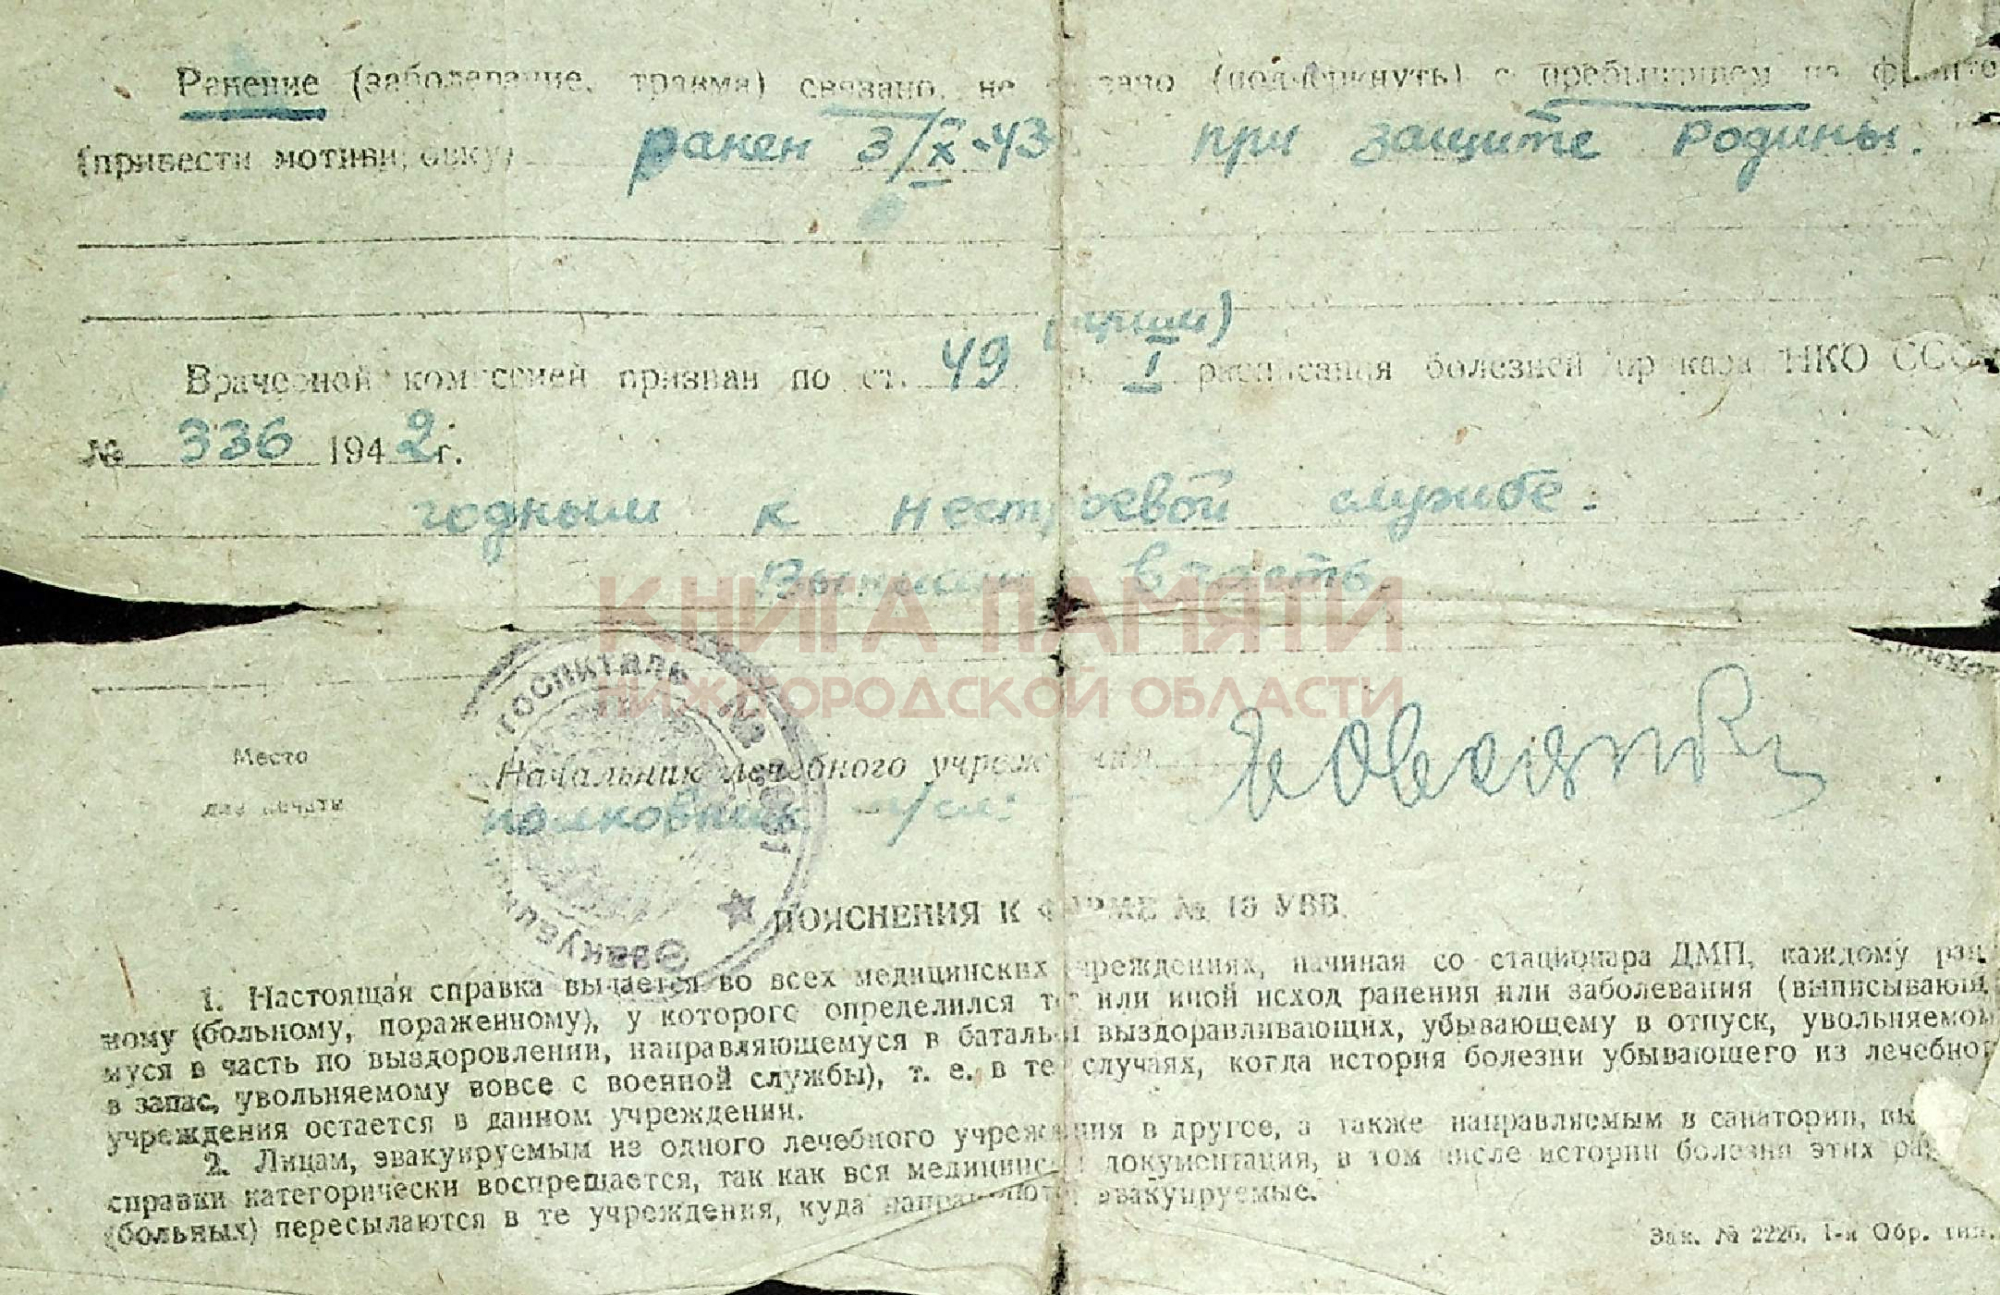 Ранение (заболевание, травма) связано, не связано (подчеркнуть) с пребыванием на фронте
(привести мотивировку) ранен 3/X-43 при защите Родины.
Врачебной комиссией признан по ст. 49 I расписания болезней приказа НКО СССР
№ 336 1942 г.
годным к нестроевой службе.
Выписан в часть
КНИГА ПАМЯТИ
НИЖЕГОРОДСКОЙ ОБЛАСТИ
госпиталь №
Место
для печати
Начальник лечебного учреждения
полковник м/сл:
Эвакуац
ПОЯСНЕНИЯ К ФОРМЕ № 16 УВВ.
1. Настоящая справка выдается во всех медицинских учреждениях, начиная со стационара ДМП, каждому ран
ному (больному, пораженному), у которого определился тот или иной исход ранения или заболевания (выписывающ
муся в часть по выздоровлении, направляющемуся в батальон выздоравливающих, убывающему в отпуск, увольняемом
в запас, увольняемому вовсе с военной службы), т. е. в тех случаях, когда история болезни убывающего из лечебног
учреждения остается в данном учреждении.
2. Лицам, эвакуируемым из одного лечебного учреждения в другое, а также направляемым в санатории,
справки категорически воспрещается, так как вся медицинская документация, в том числе истории болезни этих
(больных) пересылаются в те учреждения, куда направляются эвакуируемые.
Зак. № 2226, 1-я Обр. тип.